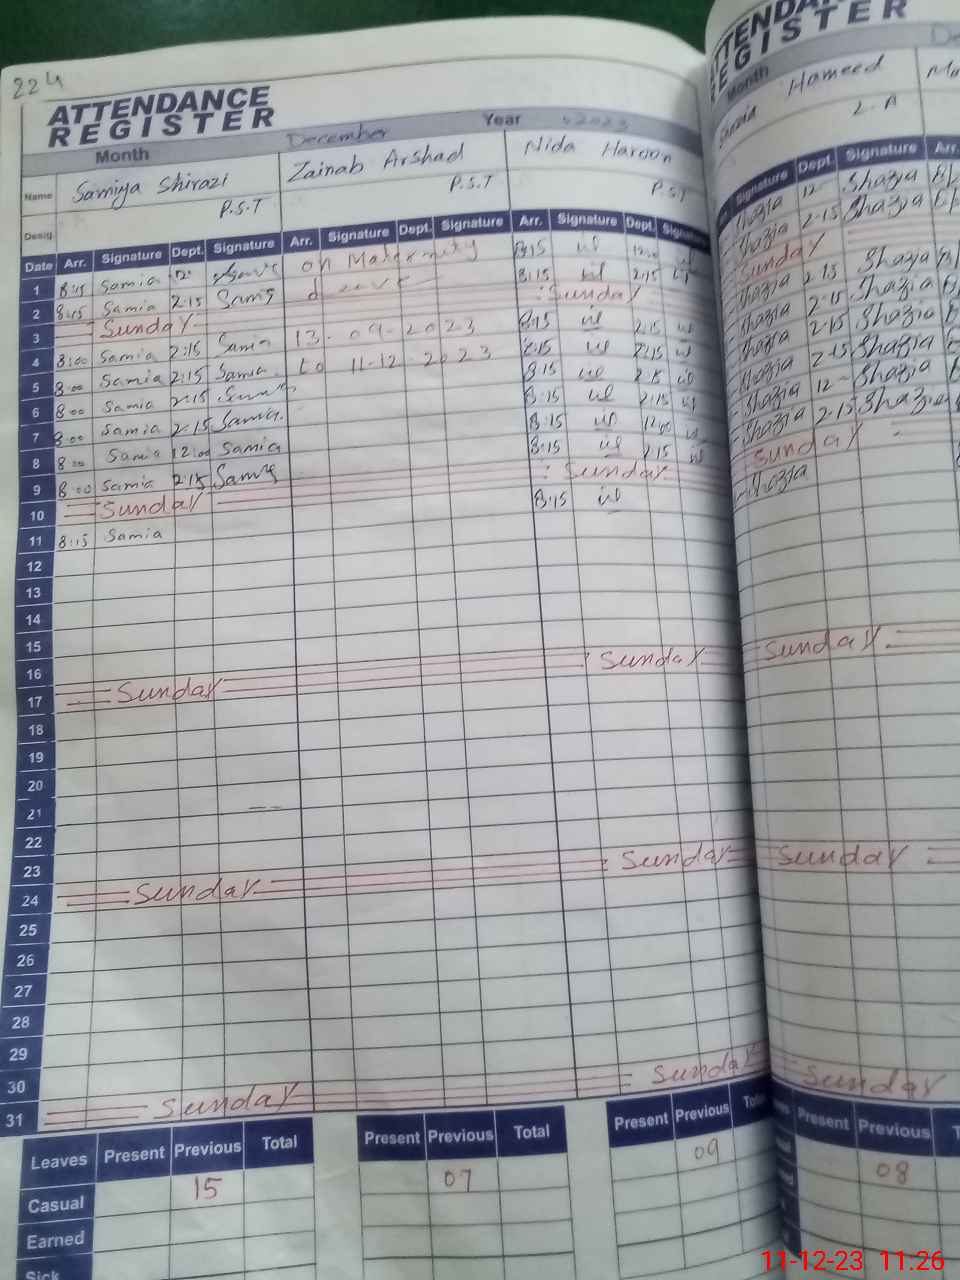 224
ATTENDANCE
REGISTER
Month December Year 2023
Name Samiya Shirazi Zainab Arshad Nida Haroon
Desig. P.S.T P.S.T P.S.T
Date Arr. Signature Dept. Signature Arr. Signature Dept. Signature Arr. Signature Dept. Signature
1 8:15 Samia 12 on Maternity 8:15
2 8:15 Samia 2:15 Samia 8:15 2:15
3 Sunday Sunday
4 8:00 Samia 2:15 Samia 13-09-2023 8:15 2:15
5 8:00 Samia 2:15 Samia to 11-12-2023 8:15 2:15
6 8:00 Samia 2:15 8:15 2:15
7 8:00 Samia 2:15 Samia 8:15 2:15
8 8:00 Samia 12:00 Samia 8:15 12:00
9 8:00 Samia 2:15 Samia 8:15 2:15
10 Sunday Sunday
11 8:15 Samia 8:15
12
13
14
15
16
17 Sunday Sunday
18
19
20
21
22
23
24 Sunday Sunday
25
26
27
28
29
30
31 Sunday Sunday
Leaves Present Previous Total Present Previous Total Present Previous
Casual 15 07 09
Earned
Sick
REGISTER
Month
Hameed
Signature Dept. Signature Arr.
Shazia 12 Shazia
Shazia 2-15 Shazia
Sunday
Shazia 2-15 Shazia
Shazia 2-15 Shazia
Shazia 2-15 Shazia
Shazia 2-15 Shazia
Shazia 12 Shazia
Shazia 2-15 Shazia
Sunday
Shazia
Sunday
Sunday
Sunday
Present Previous
08
11-12-23 11:26